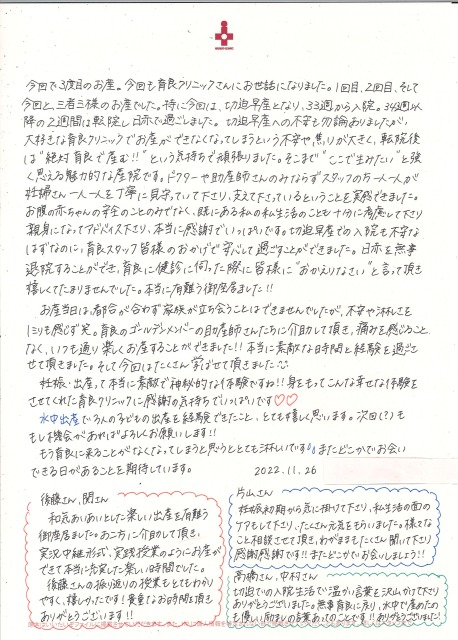 今回で3度目のお産。今回も育良クリニックさんにお世話になりました。1回目、2回目、そして
今回と、三者三様のお産でした。特に今回は、切迫早産となり、33週から入院。34週以
降の2週間は転院し日赤で過ごしました。切迫早産への不安も勿論ありましたが、
大好きな育良クリニックでお産ができなくなってしまうという不安や焦りが大きく、転院後
は"絶対育良で産む!!"という気持ちで頑張りました。そこまで"ここで生みたい"と強
く思える魅力的な産院です。ドクターや助産師さんのみならずスタッフの方一人一人が
妊婦さん一人一人を丁寧に見守っていて下さり、支えて下さっているということを実感できました。
お腹の赤ちゃんの安全のことのみでなく、既にある私の私生活のことも十分に考慮して下さり
親身になってアドバイス下さり、本当に感謝でいっぱいです。切迫早産での入院も不安な
はずなのに、育良スタッフ皆様のおかげで安心して過ごすことができました。日赤を無事
退院することができ、育良に健診に伺った際に皆様に"おかえりなさい"と言って頂き
嬉しくてたまりませんでした。本当に有難う御座居ました!!
お産当日は、都合が合わず家族が立ち会うことはできませんでしたが、不安や淋しさを
1ミリも感じず笑。育良のゴールデンメンバーの助産師さんたちに介助して頂き、痛みを感じること
なく、いつも通り楽しくお産することができました!!本当に素敵なお時間と経験を過ごさ
せて頂きました。そして今回はたくさん学ばせて頂きました
妊娠・出産って本当に素敵で神秘的な体験ですね!!身をもってこんな幸せな体験を
させてくれた育良クリニックに感謝の気持ちでいっぱいです♡♡
水中出産で3人の子どもの出産を経験できたこと、とても嬉しく思います。次回(?)も
もし機会があればよろしくお願いします!!
もう育良に来ることがなくなってしまうと思うととても淋しいですまたどこかでお会い
できる日があることを期待しています。 2022.11.26
後藤さん、関さん
和気あいあいとした楽しい出産を有難う
御座居ました。お二方に介助して頂き、
実況中継形式、実践授業のようにお産が
できて本当に充実した楽しい時間でした。
後藤さんの振り返りの授業もとてもわかり
やすく、嬉しかったです!貴重なお時間を頂き
ありがとうございます!!
片山さん
妊娠初期から気に掛けて下さり、私生活の面の
ケアもして下さり、たくさん元気をもらいました。様々な
こと相談させて頂き、わがままもたくさん聞いて下さり
感謝感謝です!!またどこかでお会いしましょう!!
高橋さん、中村さん
切迫での入院生活で温かい言葉を沢山かけて下さり
ありがとうございました。無事育良に戻り、水中で産めたの
も優しい励ましの言葉あってのことです!!ありがとうございました!